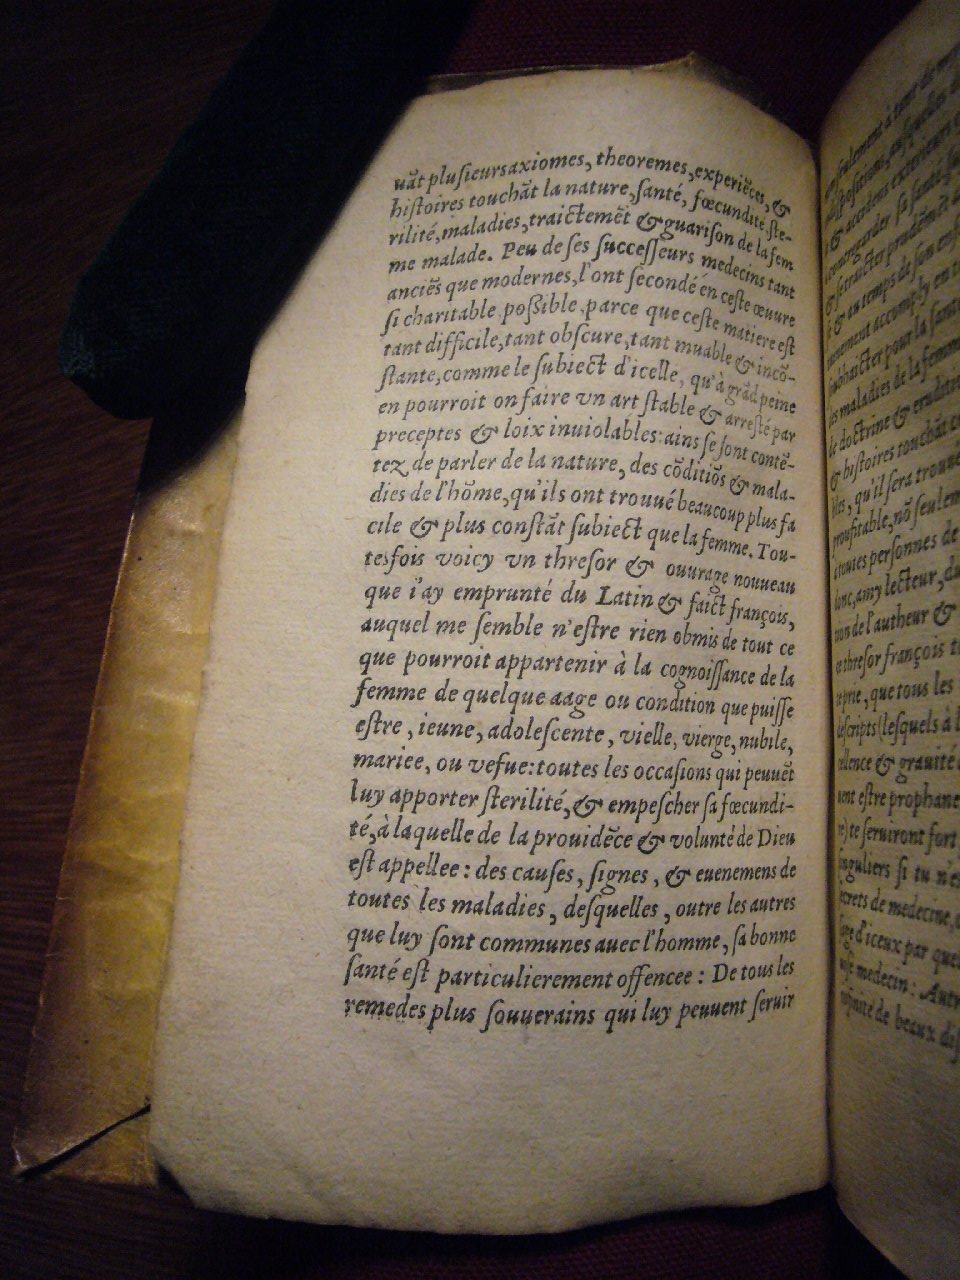 uãt plusieurs axiomes, theoremes, experiẽces, &
histoires touchãt la nature, santé, fœcundité, ste-
rilité, maladies, traictemẽt & guarison de la fem
me malade. Peu de ses successeurs medecins tant
anciẽs que modernes, l'ont secondé en ceste œuure
si charitable possible, parce que ceste matiere est
tant difficile, tant obscure, tant muable & incõ-
stante, comme le subiect d'icelle, qu'à grãd peine
en pourroit on faire vn art stable & arresté par
preceptes & loix inuiolables: ains se sont contẽ-
tez de parler de la nature, des cõditiõs & mala-
dies de l'hõme, qu'ils ont trouué beaucoup plus fa
cile & plus constãt subiect que la femme. Tou-
tesfois voicy vn thresor & ouurage nouueau
que i'ay emprunté du Latin & faict françois,
auquel me semble n'estre rien obmis de tout ce
que pourroit appartenir à la cognoissance de la
femme de quelque aage ou condition que puisse
estre, ieune, adolescente, vielle, vierge, nubile,
mariee, ou vefue: toutes les occasions qui peuuẽt
luy apporter sterilité, & empescher sa fœcundi-
té, à laquelle de la prouidẽce & volunté de Dieu
est appellee: des causes, signes, & euenemens de
toutes les maladies, desquelles, outre les autres
que luy sont communes auec l'homme, sa bonne
santé est particulierement offencee: De tous les
remedes plus souuerains qui luy peuuent seruir
seulement à temps
dispositions, ausquelles
& accidens exterieurs
contregarder sa santé
& se traicter prudẽmẽt
& au temps de son
nement accomply en
souhaicter pour la santé
les maladies de la femme
de doctrine &
& histoires touchãt
qu'il sera trouué
proufitable, nõ seulement
toutes personnes de
donc, amy lecteur,
de l'autheur &
ce thresor françois
que tous les
descripts (lesquels à
& grauité
uent estre prophane
te seruiront fort
singuliers si tu
secrets de medecine,
d'iceux par
medecin: Autr
infinité de beaux